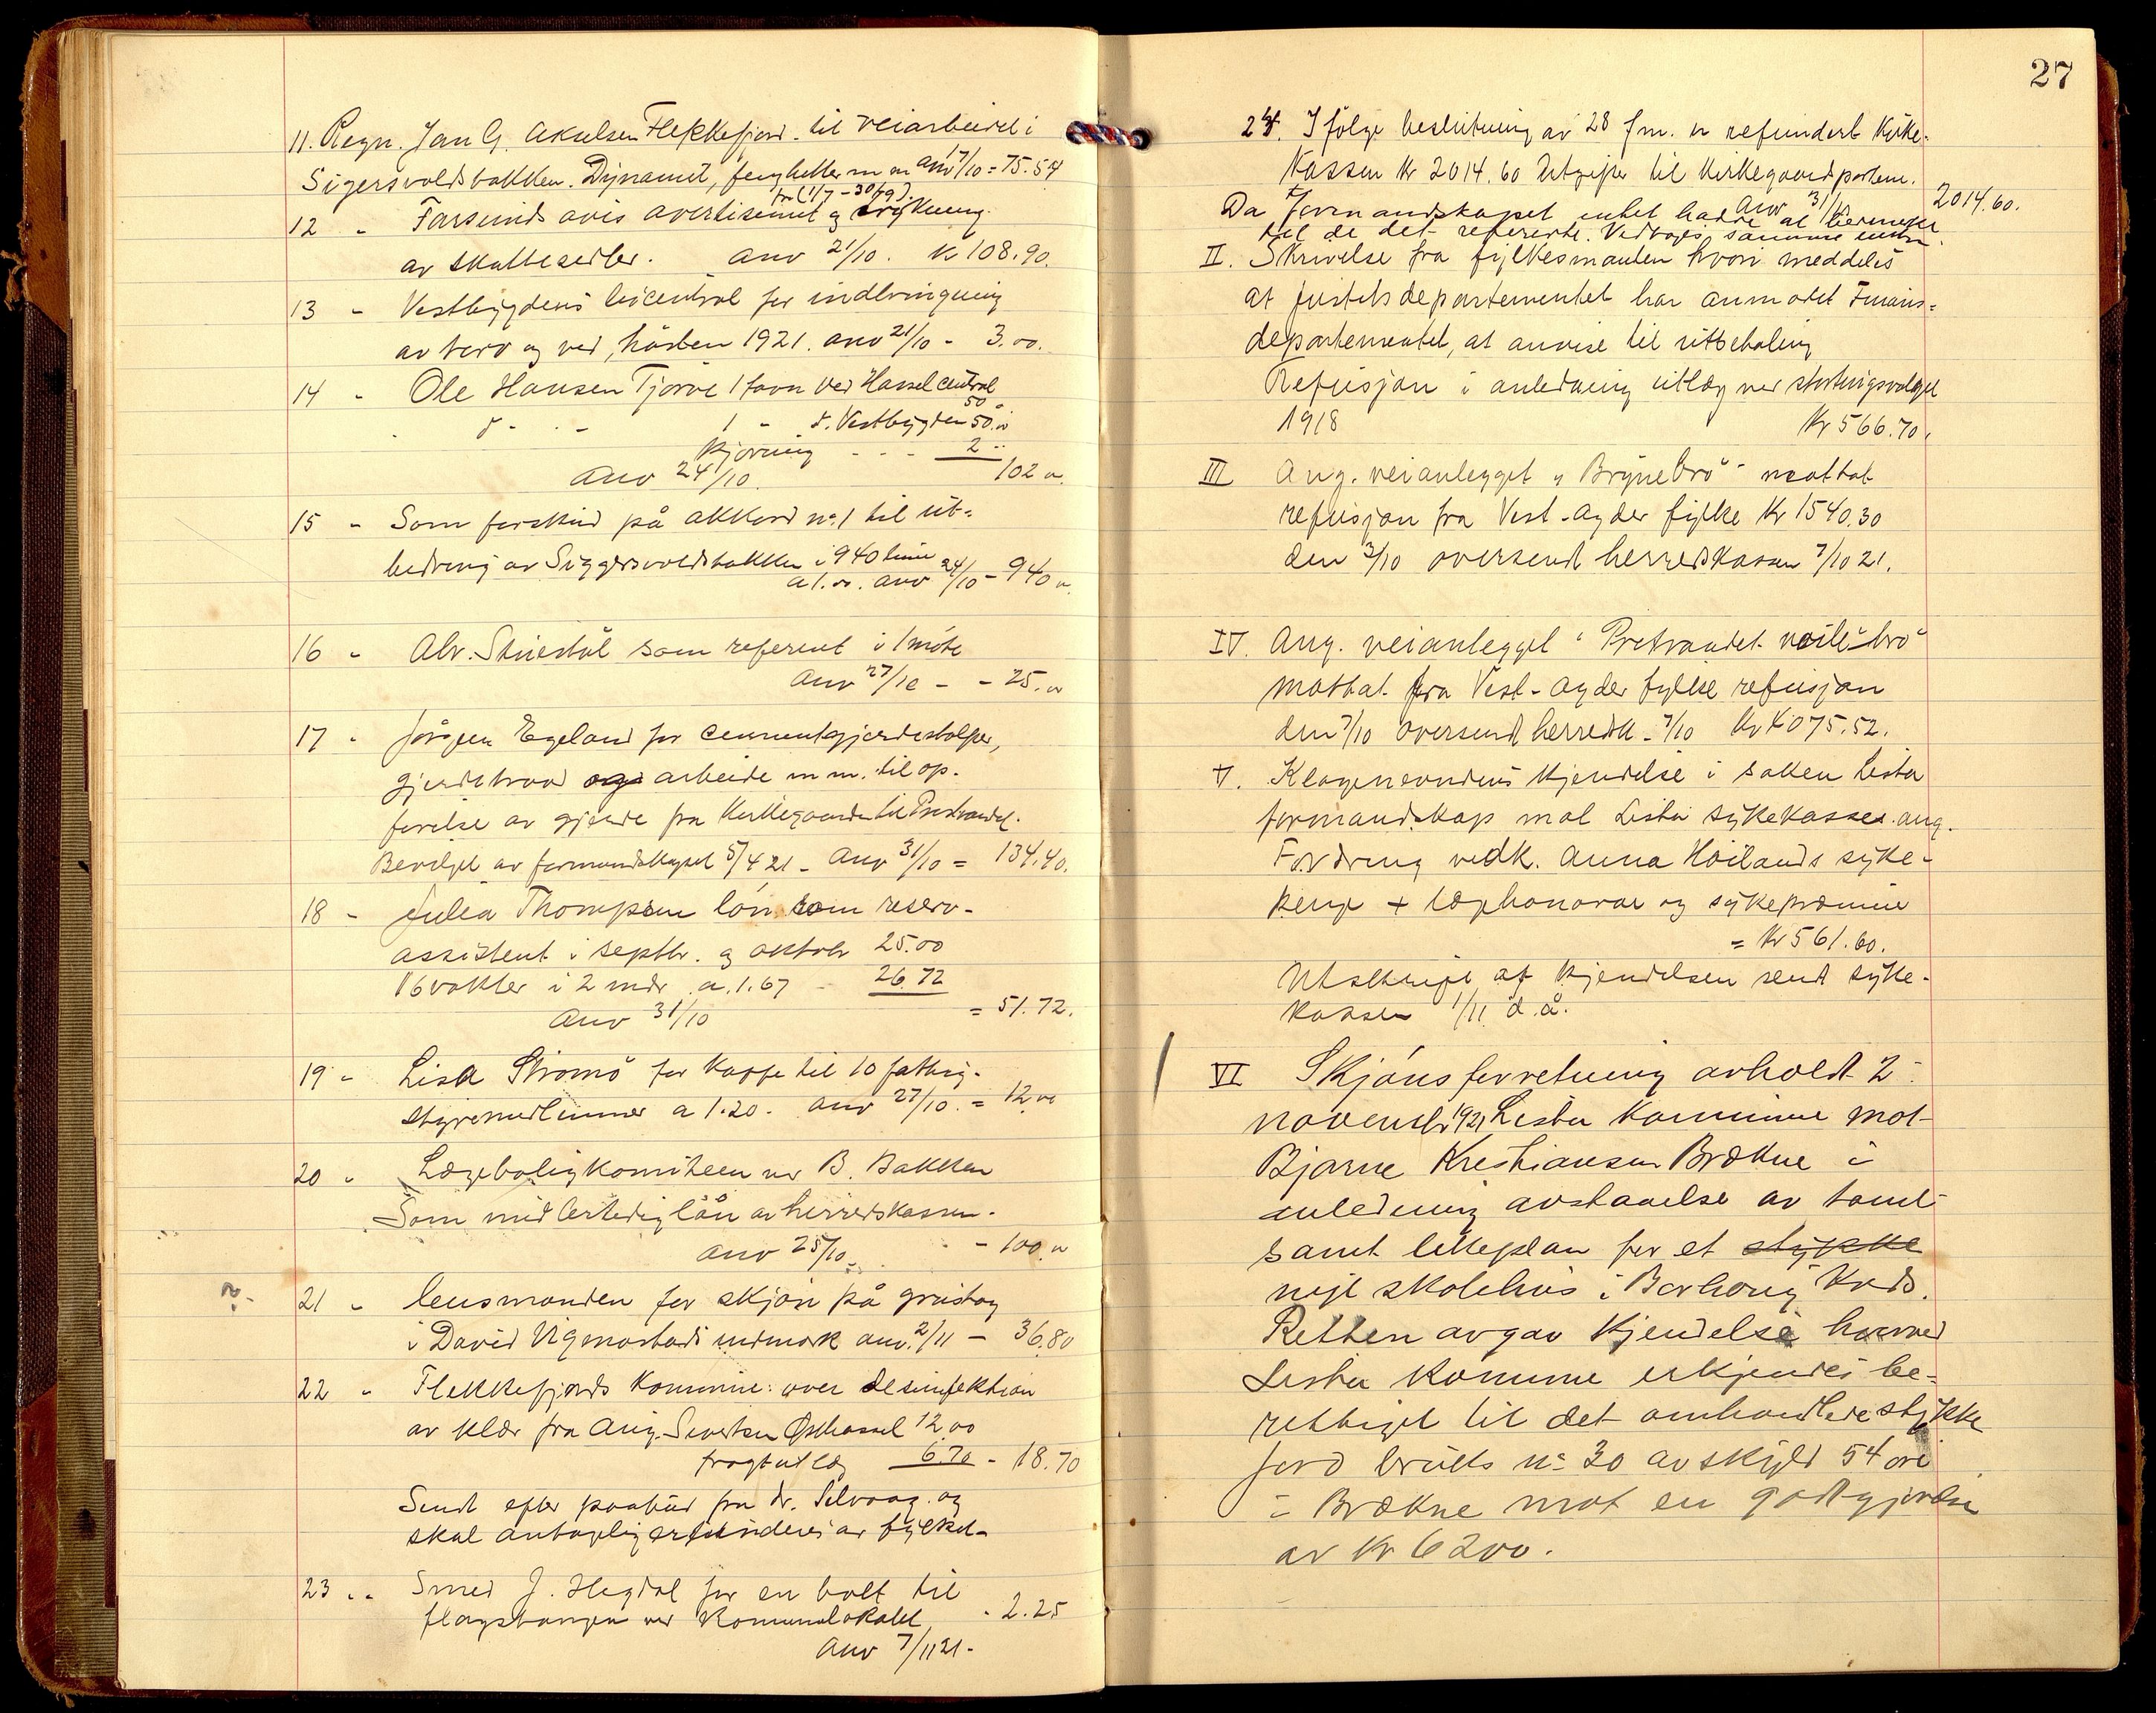 11. Regn. Jan G. Akselsen Flekkefjord til veiarbeide i
Sigersvoldsbakken. Dynamit, fenghetter m m anv 17/10 = 75.54
fra (1/7 - 30/9)
12 " Farsunds avis avertisement og trykning
av skattesedler. anv 21/10. kr 108.90.
13 " Vestbygdens licentral for indbringning
av torv og ved, hösten 1921. anv 21/10 - 3.00.
14 " Ole Hansen Tjörve 1 favn ved Hassel central
50
d. - 1 " d. Vestbygden 50.00
Kjörning - - - 2 -
Anv 24/10. 102 "
15 " Som forskud på akkord no 1 til ut-
bedring av Siggersvoldsbakken i 940 time
a 1.00. anv 24/10 - 940 "
16 " Alv. Stuestöl som referent i 1 möte
Anv 27/10 - - 25. "
17 " Jörgen Egeland for cementgjerdestolper,
gjerdetraad og arbeide m m. til op-
förelse av gjerde fra Kirkegaarden til Prestvandet.
Bevilget av formandskapet 5/4 21 - Anv 31/10 = 134,40.
18 - Julia Thompsen lön som reserv-
assistent i septbr. og oktobr 25.00
16 vakter i 2 mdr a. 1.67 - 26.72
Anv 31/10 = 51.72.
19 " Lisa Strömö for kaffe til 10 fattig-
styremedlemmer a 1.20. anv 27/10. = 12.00
20 " Lægeboligkomiteen ved B. Bakken
Som midlertidig lån av herredskassen.
anv 25/10 - 100 "
21 " lensmanden for skjön på grustag
i David Vigmostads indmark anv. 2/11 - 36.80
22 " Flekkefjords Kommune: over desinfektion
av klær fra Aug. Sivertsen Østhassel 12.00
fragtutlæg 6.70 - 18.70
Sendt efter paabud fra dr. Selvaag. og
skal antagelig refunderes av fylket-
23 " Smed J. Hegdal for en bolt til
flagstangen ved Komunelokalet - 2.25
Anv 7/11 21-
27
24. I fölge beslutning av 28 f.m. er refundert Kirke-
Kassen kr 2014.60 Utgifter til Kirkegaardportene.
Anv 31/10 2014.60.
Da formandskapet intet hadde at bemerke
til de det refererte. Vedtages samme
II. Skrivelse fra fylkesmanden hvori meddeles
at justitsdepartementet har anmodet Finans-
departementet, at anvise til utbetaling
Refusjon i anledning utlæg ved stortingsvalget
1918 Kr 566.70.
III Ang. veianlegget "Brynebrö" mottat
refusjon fra Vest-Agder fylke Kr 1540.30
den 3/10 oversendt herredskassen 7/10 21.
IV. Ang. veianlegget "Prestvandet - bro"
mottat fra Vest-Agder fylke refusjon
den 7/10 oversendt herredsk. 7/10 Kr 075.52.
V. Klagenevndens kjendelse i saken Lista
formandskap mot Lista sykekasse ang.
Fordring vedk. Anna Höilands syke-
penge + lægehonorar og sykepræmie
= Kr 561.60.
Utskrift af kjendelsen sendt syke-
kassen 1/11 d.å.
VI Skjönsforretning avholdt 2-
novembr 1921 Lista Kommune mot
Bjarne Kristiansen Brækne i
anledning avstaaelse av tomt
samt lekeplan for et stykke
nyt skolehus i Borhaug Krds.
Retten avgav kjendelse hvorved
Lista Komune erkjendes be-
rettiget til det omhandlede stykke
jord bruks no 30 av skyld 54 öre
i Brækne mot en godtgjörelse
av Kr 6200.